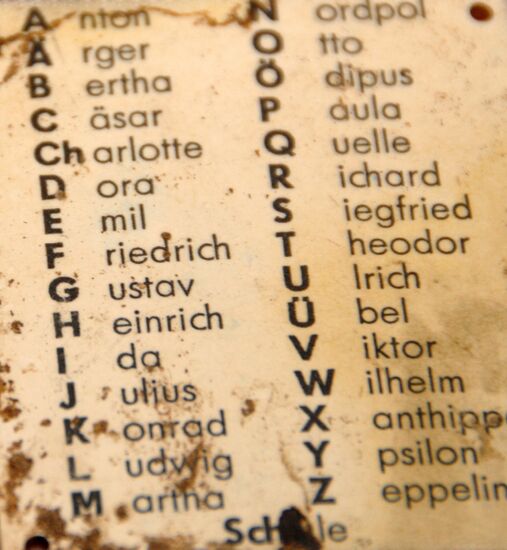 A nton
Ä rger
B ertha
C äsar
Ch arlotte
D ora
E mil
F riedrich
G ustav
H einrich
I da
J ulius
K onrad
L udwig
M artha
N ordpol
O tto
Ö dipus
P aula
Q uelle
R ichard
S iegfried
T heodor
U lrich
Ü bel
V iktor
W ilhelm
X anthippe
Y psilon
Z eppelin
Sch ule